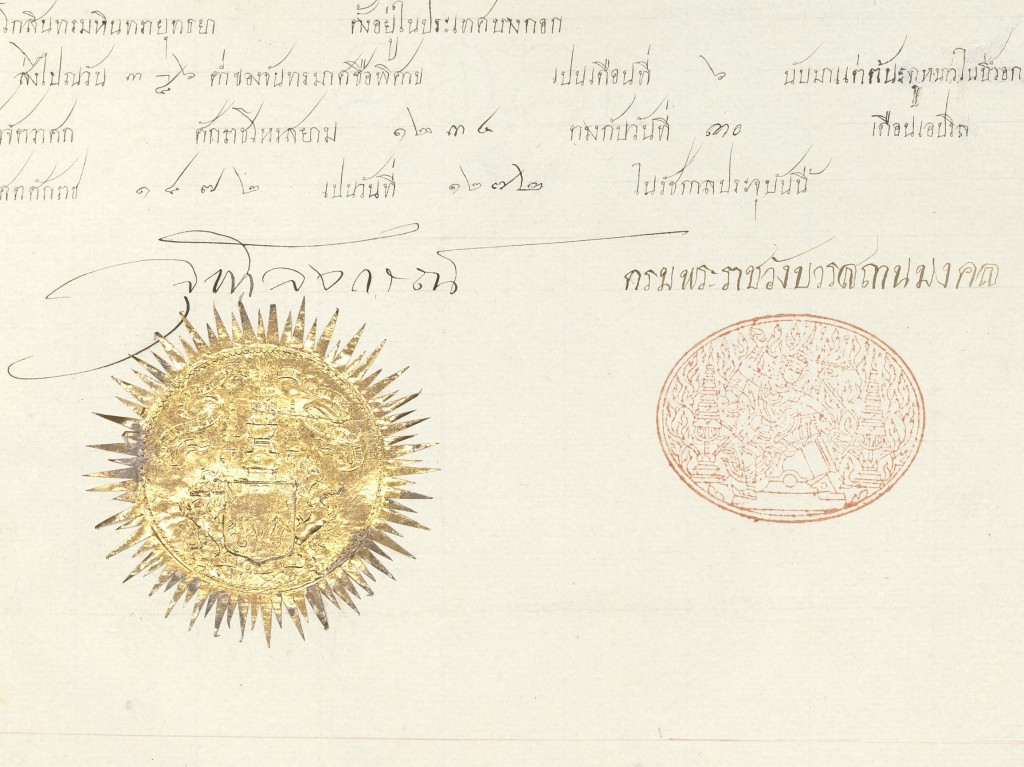 โกสินทรมหินทรายุทธยา ตั้งอยู่ในประเทศบางกอก
ส่งไปณวัน ๓ ๖ ค่ำของจันทรมาศชื่อพิศาข เปนเดือนที่ ๖ นับมาแต่ต้นระดูหนาวในปีวอก
จัตวาศก ศักราชโหรสยาม ๑๒๓๔ ตรงกับวันที่ ๓๐ เดือนเอปริล
ศตศักราช ๑๘๗๒ เปนวันที่ ๑๒๗๒ ในรัชกาลประจุบันนี้
จุฬาลงกรณ์ กรมพระราชวังบวรสถานมงคล